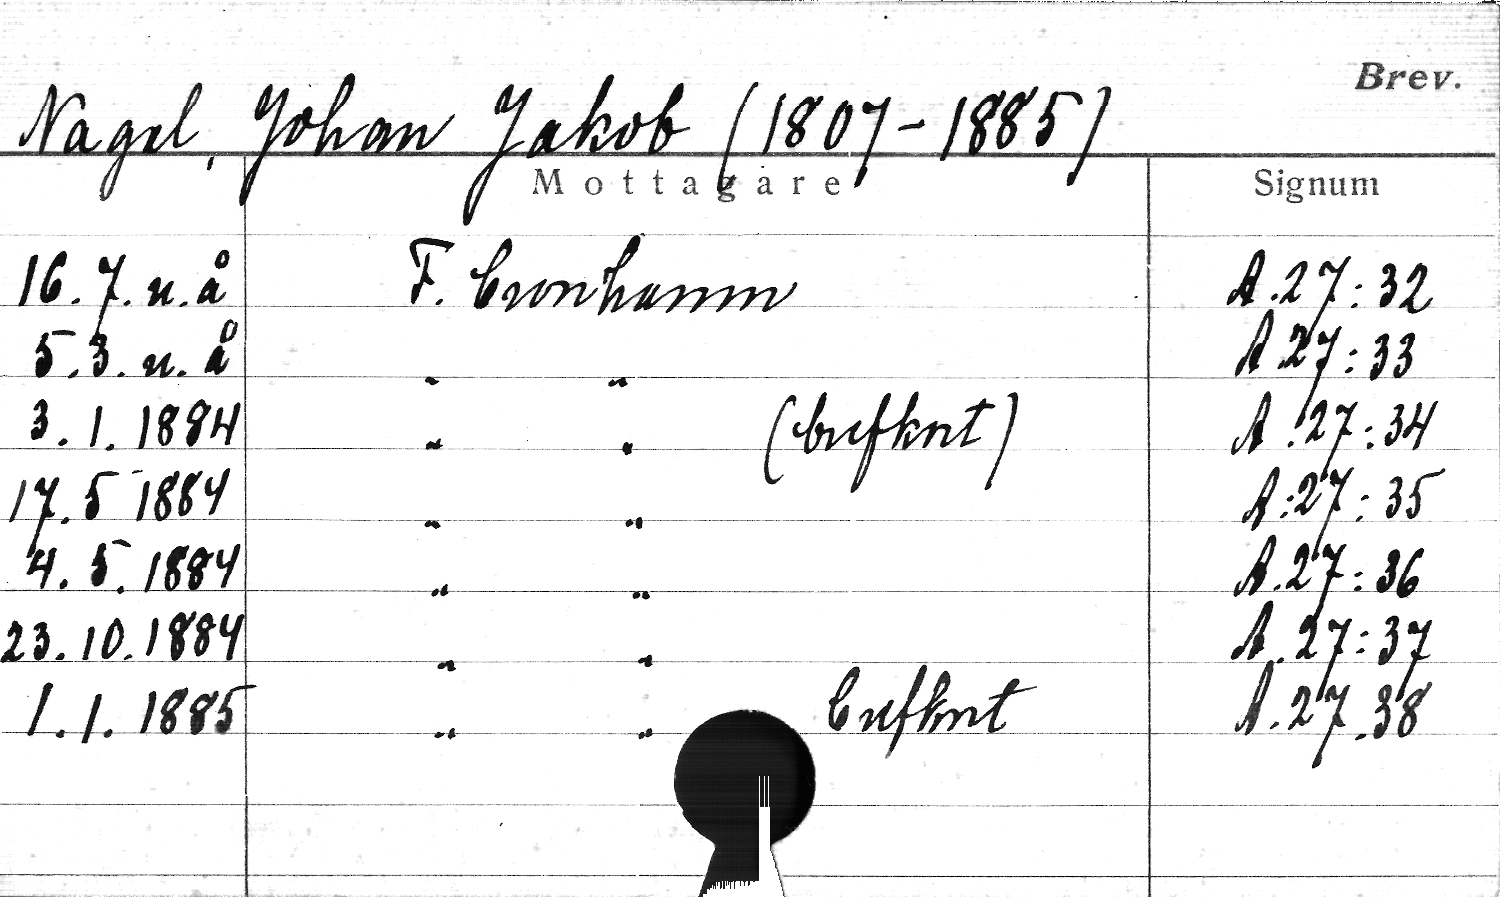 Brev.
Nagel, Johan Jakob (1807-1885)
Mottagare Signum
16.7. n. å F. Cronhamm A.27:32
5.3. n. å " " A.27:33
3.1. 1884 " " (brefkort) A.27:34
17.5 1884 " " A.27:35
4.5. 1884 " " A.27:36
23.10.1884 " " A.27:37
1.1. 1885 " " Brefkort A.27.38